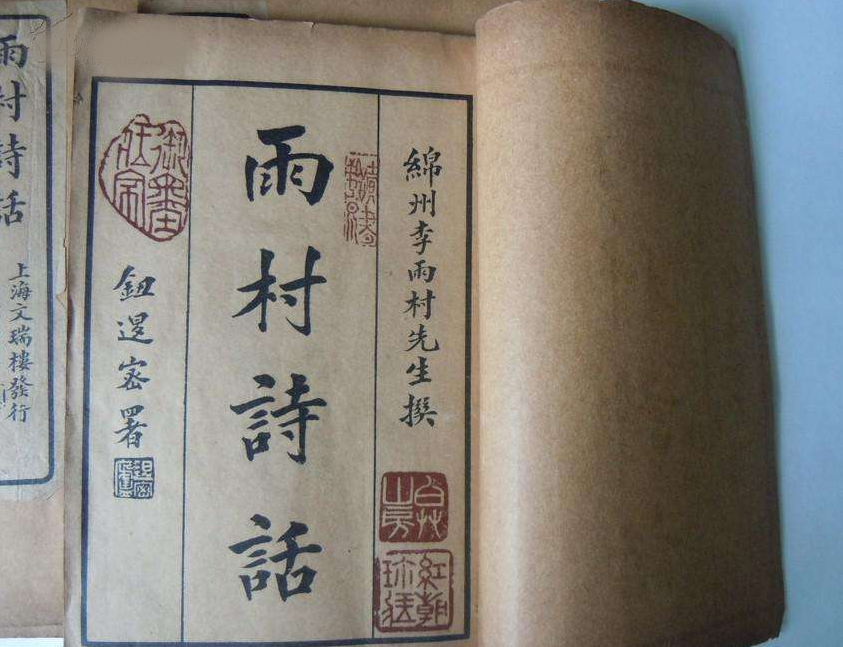 綿州李雨村先生撰
雨村詩話
鈕宻署
雨村詩話
上海文瑞樓發行